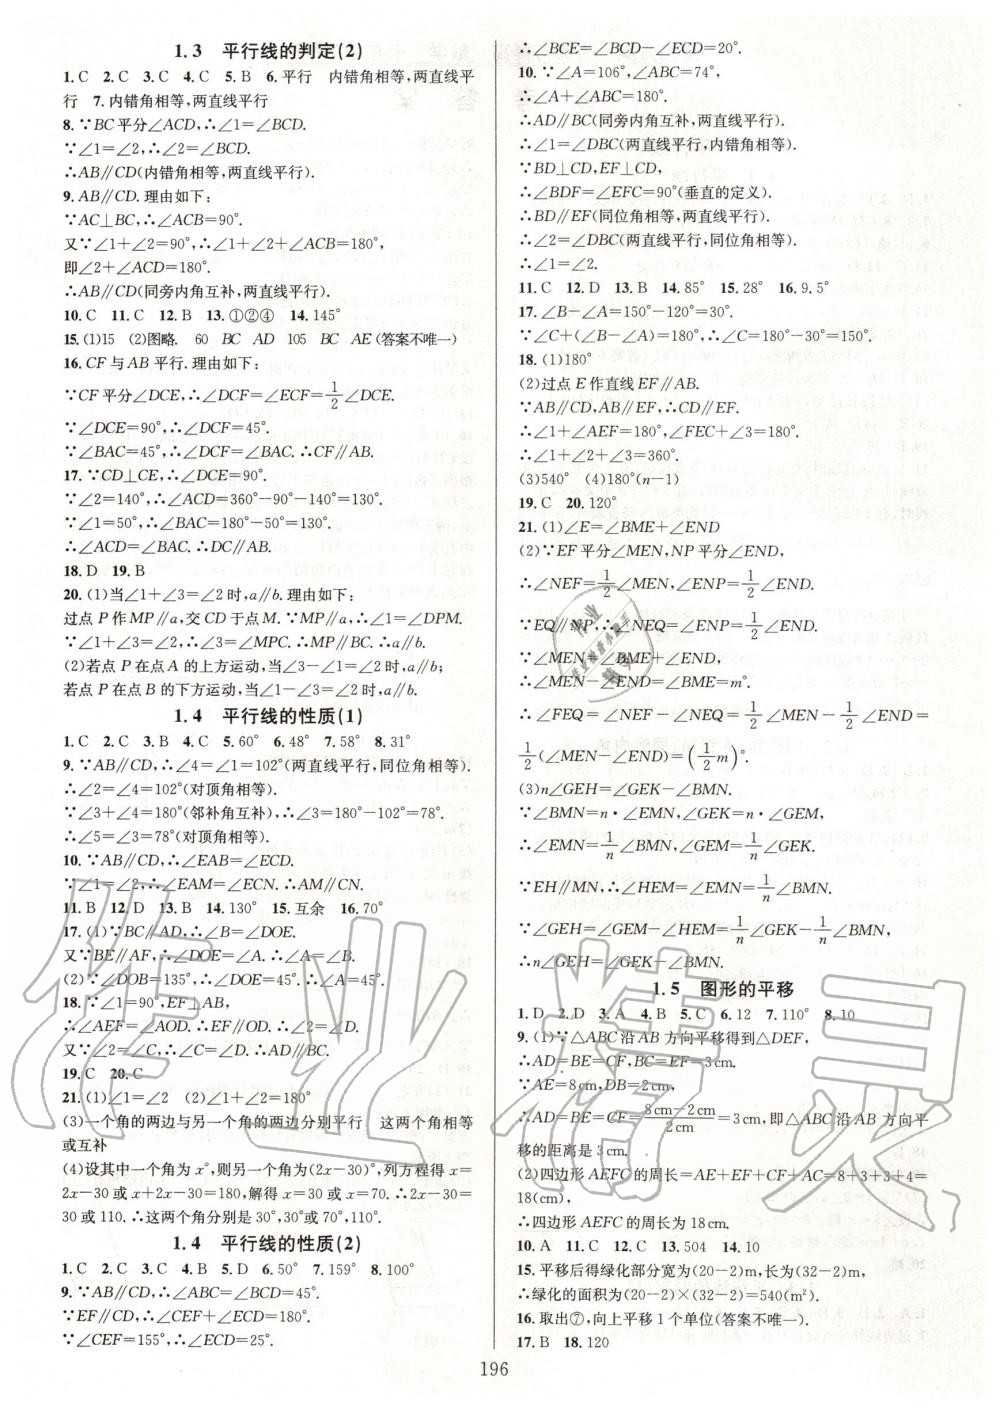 1.3 平行线的判定(2)
1.C 2.C 3.C 4.C 5.B 6.平行 内错角相等,两直线平
行 7.内错角相等,两直线平行
8.∵BC平分∠ACD,∴∠1=∠BCD.
∵∠1=∠2,∴∠2=∠BCD.
∴AB∥CD(内错角相等,两直线平行).
9.AB∥CD.理由如下:
∵AC⊥BC,∴∠ACB=90°.
又∵∠1+∠2=90°,∴∠1+∠2+∠ACB=180°,
即∠2+∠ACD=180°.
∴AB∥CD(同旁内角互补,两直线平行).
10.C 11.C 12.B 13.①②④ 14.145°
15.(1)15 (2)图略. 60 BC AD 105 BC AE(答案不唯一)
16.CF与AB平行.理由如下:
∵CF平分∠DCE,∴∠DCF=∠ECF=1/2∠DCE.
∵∠DCE=90°,∴∠DCF=45°.
∵∠BAC=45°,∴∠DCF=∠BAC.∴CF∥AB.
17.∵CD⊥CE,∴∠DCE=90°.
∵∠2=140°,∴∠ACD=360°-90°-140°=130°.
∵∠1=50°,∴∠BAC=180°-50°=130°.
∴∠ACD=∠BAC.∴DC∥AB.
18.D 19.B
20.(1)当∠1+∠3=∠2时,a∥b.理由如下:
过点P作MP∥a,交CD于点M.∵MP∥a,∴∠1=∠DPM.
∵∠1+∠3=∠2,∴∠3=∠MPC.∴MP∥BC.∴a∥b.
(2)若点P在点A的上方运动,当∠3-∠1=∠2时,a∥b;
若点P在点B的下方运动,当∠1-∠3=∠2时,a∥b.
1.4 平行线的性质(1)
1.C 2.C 3.B 4.C 5.60° 6.48° 7.58° 8.31°
9.∵AB∥CD,∴∠4=∠1=102°(两直线平行,同位角相等).
∴∠2=∠4=102°(对顶角相等).
∵∠3+∠4=180°(邻补角互补),∴∠3=180°-102°=78°.
∴∠5=∠3=78°(对顶角相等).
10.∵AB∥CD,∴∠EAB=∠ECD.
∵∠1=∠2,∴∠EAM=∠ECN.∴AM∥CN.
11.B 12.D 13.B 14.130° 15.互余 16.70°
17.(1)∵BC∥AD,∴∠B=∠DOE.
又∵BE∥AF,∴∠DOE=∠A.∴∠A=∠B.
(2)∵∠DOB=135°,∴∠DOE=45°.∴∠A=45°.
18.∵∠1=90°,EF⊥AB,
∴∠AEF=∠AOD.∴EF∥OD.∴∠2=∠D.
又∵∠2=∠C,∴∠C=∠D.∴AD∥BC.
19.C 20.C
21.(1)∠1=∠2 (2)∠1+∠2=180°
(3)一个角的两边与另一个角的两边分别平行 这两个角相等
或互补
(4)设其中一个角为x°,则另一个角为(2x-30)°,列方程得x=
2x-30或x+2x-30=180,解得x=30或x=70.∴2x-30=
30或110.∴这两个角分别是30°,30°或70°,110°.
1.4 平行线的性质(2)
1.C 2.C 3.B 4.C 5.D 6.50° 7.159° 8.100°
9.∵AB∥CD,∴∠ABC=∠BCD=45°.
∵EF∥CD,∴∠CEF+∠ECD=180°.
∵∠CEF=155°,∴∠ECD=25°.
∴∠BCE=∠BCD-∠ECD=20°.
10.∵∠A=106°,∠ABC=74°,
∴∠A+∠ABC=180°.
∴AD∥BC(同旁内角互补,两直线平行).
∴∠1=∠DBC(两直线平行,内错角相等).
∵BD⊥CD,EF⊥CD,
∴∠BDF=∠EFC=90°(垂直的定义).
∴BD∥EF(同位角相等,两直线平行).
∴∠2=∠DBC(两直线平行,同位角相等).
∴∠1=∠2.
11.C 12.D 13.B 14.85° 15.28° 16.9.5°
17.∠B-∠A=150°-120°=30°.
∵∠C+(∠B-∠A)=180°,∴∠C=180°-30°=150°.
18.(1)180°
(2)过点E作直线EF∥AB.
∵AB∥CD,AB∥EF,∴CD∥EF.
∴∠1+∠AEF=180°,∠FEC+∠3=180°.
∴∠1+∠2+∠3=360°.
(3)540° (4)180°(n-1)
19.C 20.120°
21.(1)∠E=∠BME+∠END
(2)∵EF平分∠MEN,NP平分∠END,
∴∠NEF=1/2∠MEN,∠ENP=1/2∠END.
∵EQ∥NP,∴∠NEQ=∠ENP=1/2∠END.
∵∠MEN=∠BME+∠END,
∴∠MEN-∠END=∠BME=m°.
∴∠FEQ=∠NEF-∠NEQ=1/2∠MEN-1/2∠END=
1/2(∠MEN-∠END)=(1/2m)°.
(3)n∠GEH=∠GEK-∠BMN.
∵∠BMN=n·∠EMN,∠GEK=n·∠GEM,
∴∠EMN=1/n∠BMN,∠GEM=1/n∠GEK.
∵EH∥MN,∴∠HEM=∠EMN=1/n∠BMN.
∵∠GEH=∠GEM-∠HEM=1/n∠GEK-1/n∠BMN,
∴n∠GEH=∠GEK-∠BMN.
1.5 图形的平移
1.D 2.D 3.A 4.B 5.C 6.12 7.110° 8.10
9.(1)∵△ABC沿AB方向平移得到△DEF,
∴AD=BE=CF,BC=EF=3cm.
∵AE=8cm,DB=2cm,
∴AD=BE=CF=8cm-2cm/2cm=3cm,即△ABC沿AB方向平
移的距离是3cm.
(2)四边形AEFC的周长=AE+EF+CF+AC=8+3+3+4=
18(cm),
∴四边形AEFC的周长为18cm.
10.A 11.C 12.C 13.504 14.10
15.平移后得绿化部分宽为(20-2)m,长为(32-2)m,
∴绿化的面积为(20-2)×(32-2)=540(m²).
16.取出⑦,向上平移1个单位(答案不唯一).
17.B 18.120
196
作业精灵